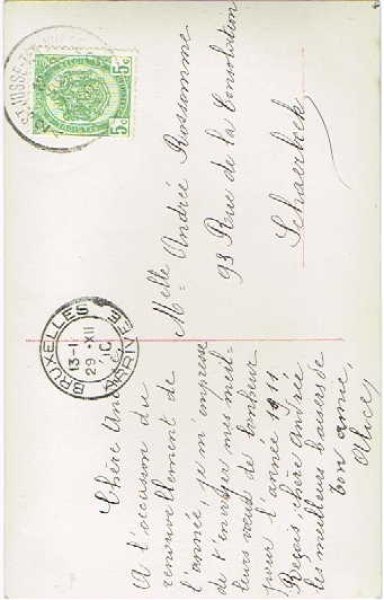 Chère Andrée
A l'occasion du
renouvellement de
l'année, je m'empresse
de t'envoyer mes meil-
leurs vœux de bonheur
pour l'année 1911
Reçois, chère Andrée
les meilleurs baisers de
ton amie,
Alice
Melle Andrée Rossomme
93 Rue de la Consolation
Schaerbeek
5c 5c
BRUXELLES
13-1
29·XII
10
ARRIVEE